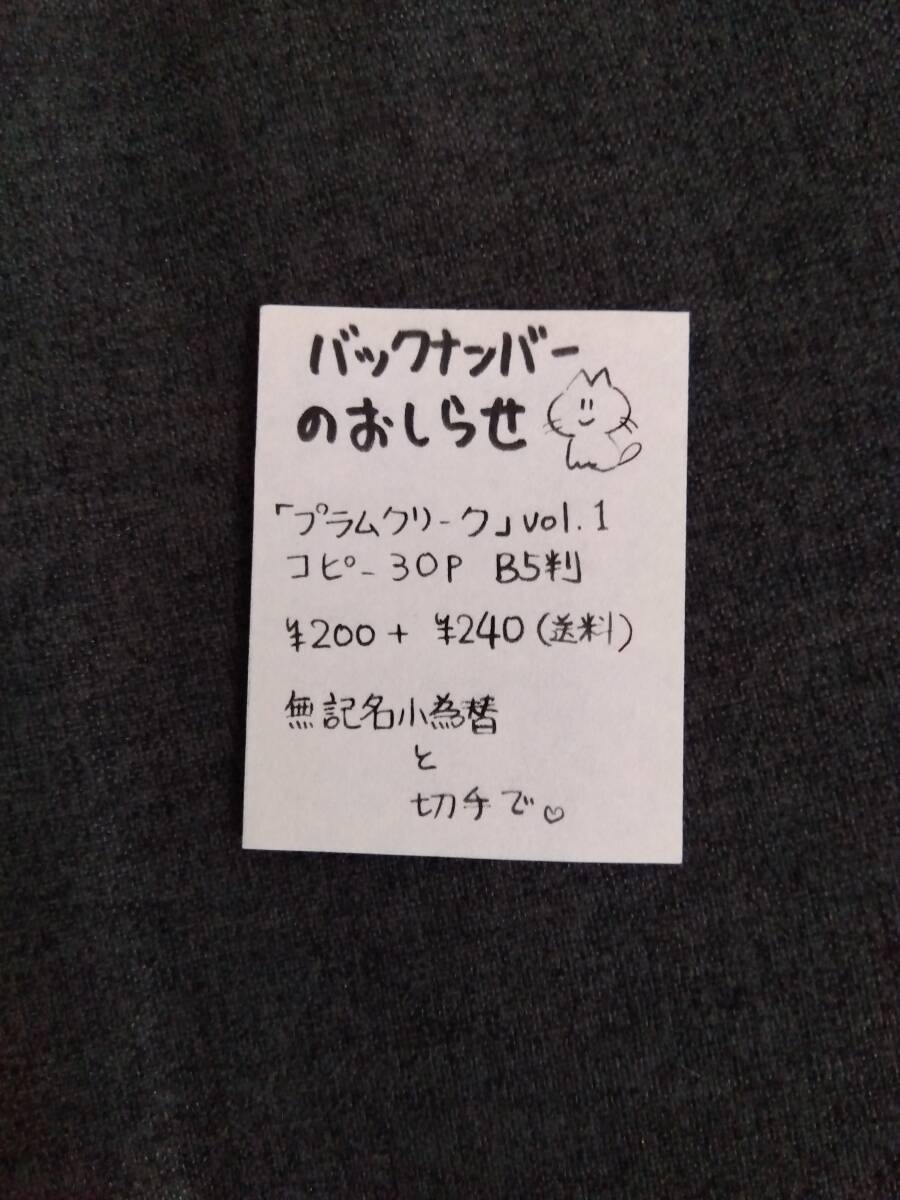 バックナンバー
のおしらせ
「プラムクリーク」vol.1
コピー30P B5判
¥200+ ¥240(送料)
無記名小為替
と
切手で。♡